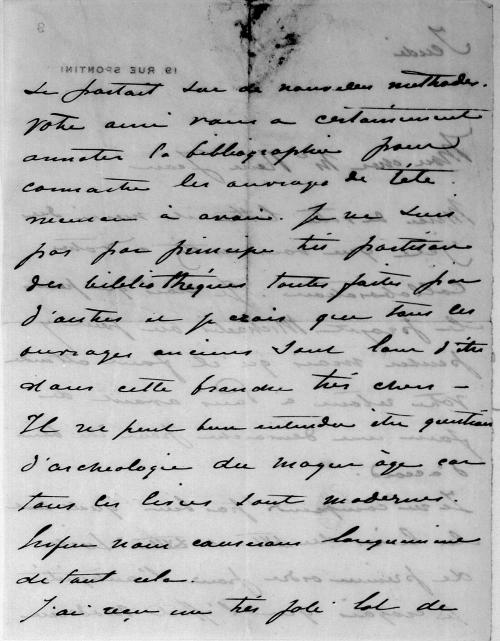 se portait sur de nouvelles methodes.
Votre ami vous a certainement
annoter la bibliographie pour
connaitre les ouvrages de tête
à avoir. Je ne suis
pas par principe très partisan
des bibliothéques toutes faites par
d'autres et je crois que tous les
ouvrages anciens sont loin d'être
dans cette branche très chers —
Il ne peut bien entendu être question
d'archeologie du moyen âge car
tous les livres sont modernes.
Enfin nous causerons longuement
de tout cela.
J'ai reçu un très joli lot de